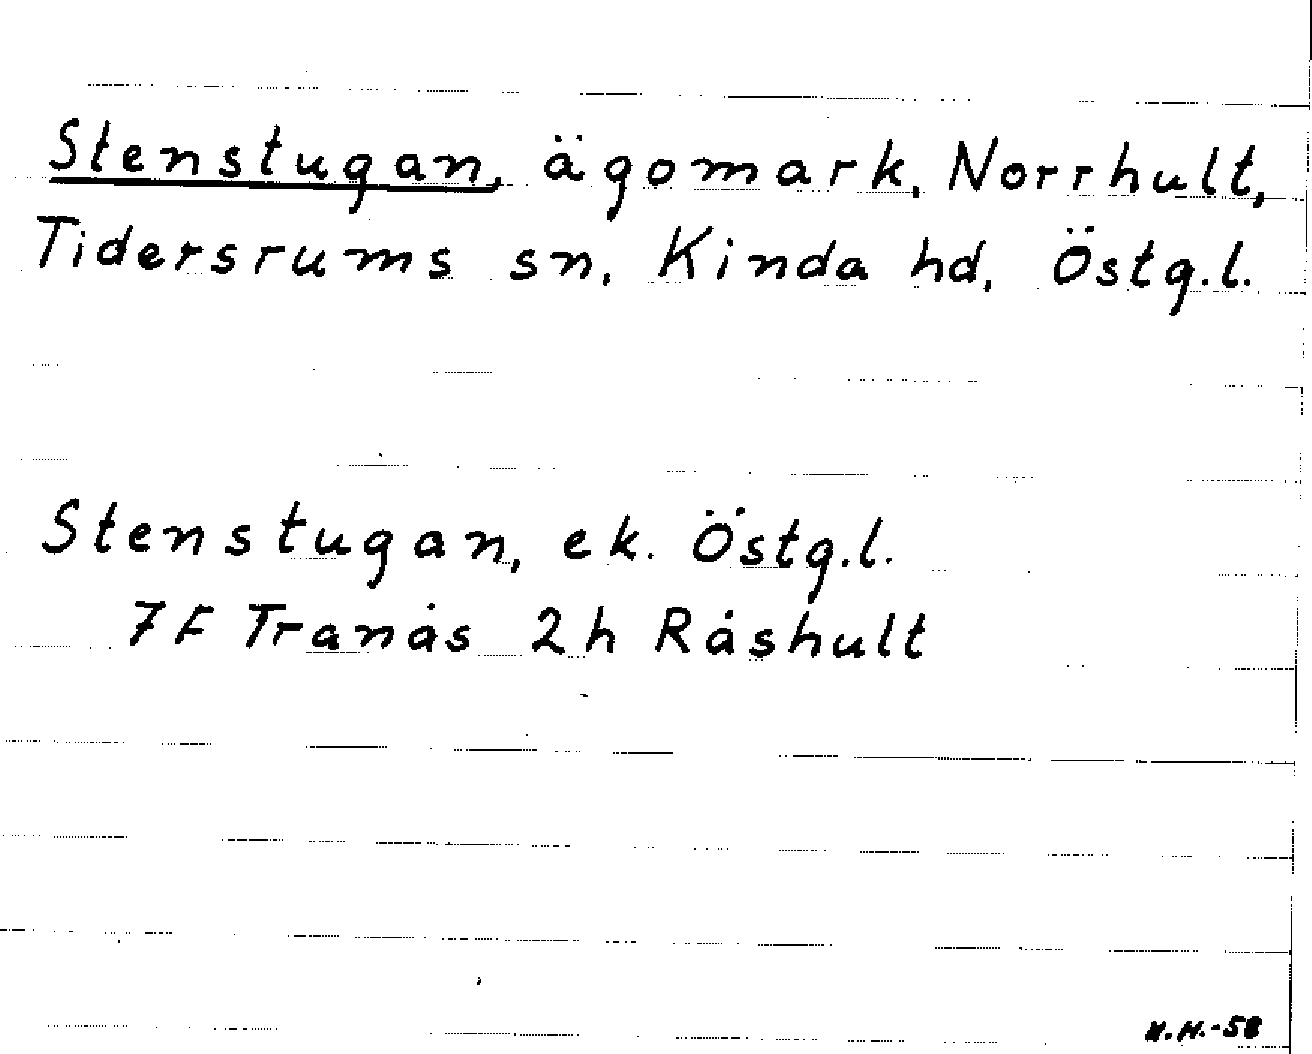 Stenstugan, ägomark, Norrhult,
Tidersrums sn, Kinda hd, Östg.l.
Stenstugan, ek. Östg.l.
7F Tranås 2h Råshult
H.H.-58